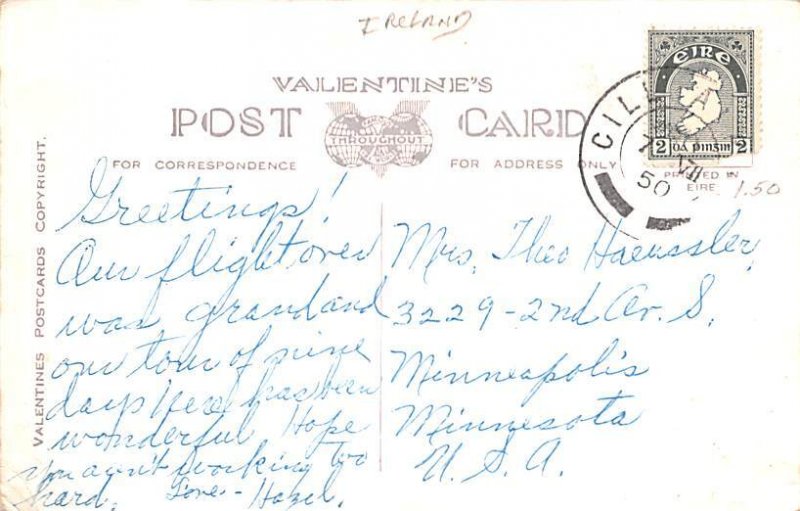 IRELAND
VALENTINE'S
POST CARD
THROUGHOUT
FOR CORRESPONDENCE
FOR ADDRESS ONLY
VALENTINES POSTCARDS COPYRIGHT.
Greetings!
Our flight over
was grand and
our tour of nine
days here has been
wonderful Hope
you aren't working too
hard. Love - Hazel.
éire
2 dá pingin 2
CILL
VII
50
PRINTED IN
EIRE
1.50
Mrs. Theo Haeussler,
3229-2nd Av. S.
Minneapolis
Minnesota
U. S. A.